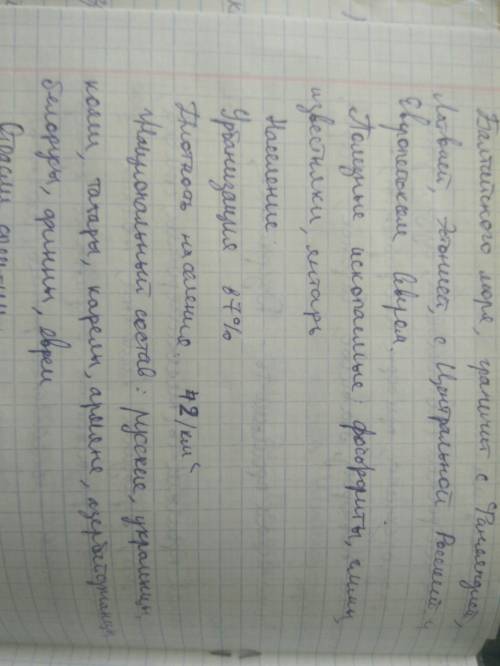 Балтийского моря, граничит с Финляндией,
Латвией, Эстонией, с Центральной Россией и
Европейским Севером.
Полезные ископаемые: фосфориты, глины,
известняки, янтарь
Население:
Урбанизация 87%
Плотность населения: 42/км²
Национальный состав: русские, украинцы,
коми, татары, карелы, армяне, азербайджанцы,
белорусы, финны, евреи